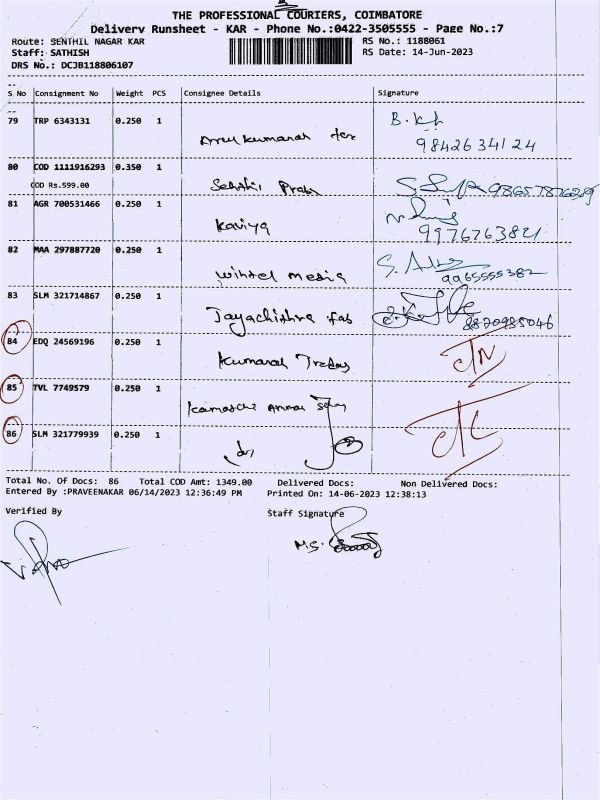 THE PROFESSIONAL COURIERS, COIMBATORE
Delivery Runsheet - KAR - Phone No.:0422-3505555 - Page No.:7
Route: SENTHIL NAGAR KAR RS No.: I188061
Staff: SATHISH RS Date: 14-Jun-2023
DRS No.: DCJB118806107
S No Consignment No Weight PCS Consignee Details Signature
79 TRP 6343131 0.250 1 Arulkumaran tex B.
9842634124
80 COD 1111916293 0.350 1
COD Rs.599.00 Senthil Prabu
81 AGR 700531466 0.250 1 Kaviya
9976763821
82 MAA 297887720 0.250 1 Wintel media S.
9965555382
83 SLM 321714867 0.250 1 Jayachithra fab
8870985046
84 EDQ 24569196 0.250 1 Kumaran Traders
85 TVL 7749579 0.250 1 Kamatchi Amman
86 SLM 321779939 0.250 1
Total No. Of Docs: 86 Total COD Amt: 1349.00 Delivered Docs: Non Delivered Docs:
Entered By :PRAVEENAKAR 06/14/2023 12:36:49 PM Printed On: 14-06-2023 12:38:13
Verified By Staff Signature
MS.